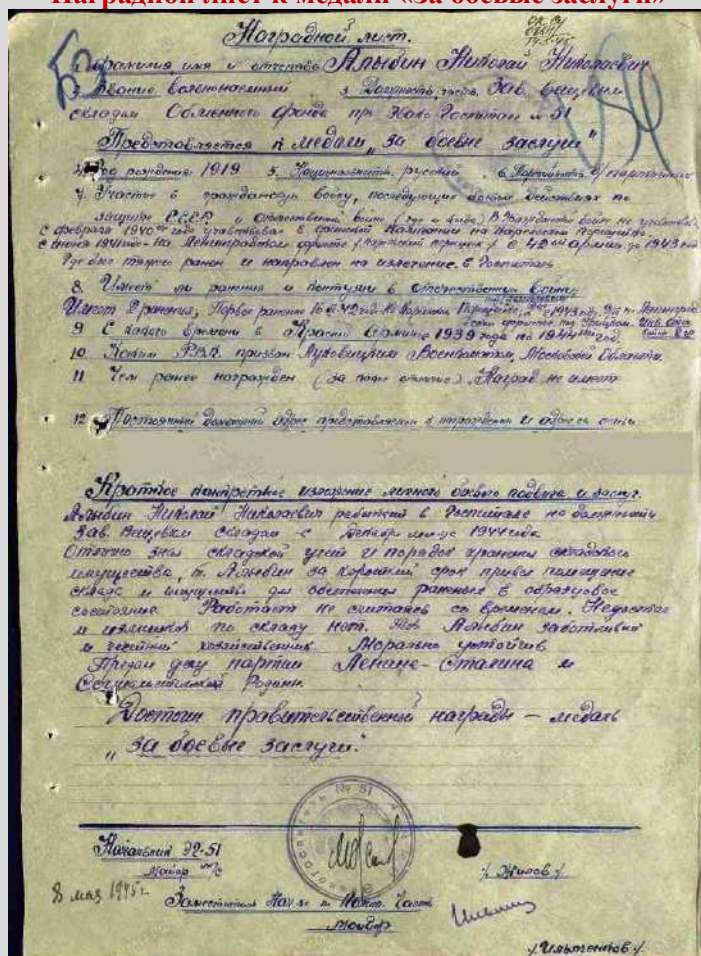 Наградной лист к медали «За боевые заслуги»
Наградной лист.
1. Фамилия имя и отчество Алыбин Николай Николаевич
2. Звание вольнонаемный 3. Должность, часть Зав. вещевым
складом Обменного фонда при Эвако Госпитале № 51
Представляется к медали „за боевые заслуги"
4. Год рождения 1919 5. Национальность русский 6. Партийность б/партийный
7. Участие в гражданскую войну, последующие боевые действиях по
защите СССР и отечественной войне (где и когда) В Гражданской войне не участвовал
с февраля 1940 года участвовал в финской Кампании на Карельском Перешейке.
с июня 1941 года - на Ленинградском фронте (Карельский перешеек) с 42ой Армии до 1943 год
Где был тяжело ранен и направлен на излечение в Госпиталь
8. Имеет ли ранения и контузии в отечественной войне
Имеет 2 ранения, Первое ранение 42 год На Карельском Перешейке, 1943 году
9 С какого времени в Красной армии с 1939 года по 1944 год.
10. Каким Р.В.К. призван Луховицким Военкоматом, Московской Области.
11 Чем ранее награжден (за какие отличия) Наград не имеет
12 Постоянный домашний адрес представляемого к награждению и адрес семьи
Краткое конкретное изложение личного боевого подвига и заслуг.
Алыбин Николай Николаевич работает в Госпитале на должности
Зав. Вещевым складом с Декабря м-ца 1944 года
Отлично зная складской учет и порядок хранения складского
имущества, т. Алыбин за короткий срок привел помещение
склада и имущество для обеспечения раненых в образцовое
состояние. Работает не считаясь со временем. Недостач
и излишков по складу нет. Тов Алыбин заботливый
и честный хозяйственник. Морально устойчив
Предан делу партии Ленина-Сталина и
Социалистической Родине.
Достоин правительственной награды – медаль
„за боевые заслуги."
№ 51
Начальник ЭГ-51
Майор м/с
/ Жилов /
8 мая 1945 г.
Заместитель Нач-ка по Части
Майор